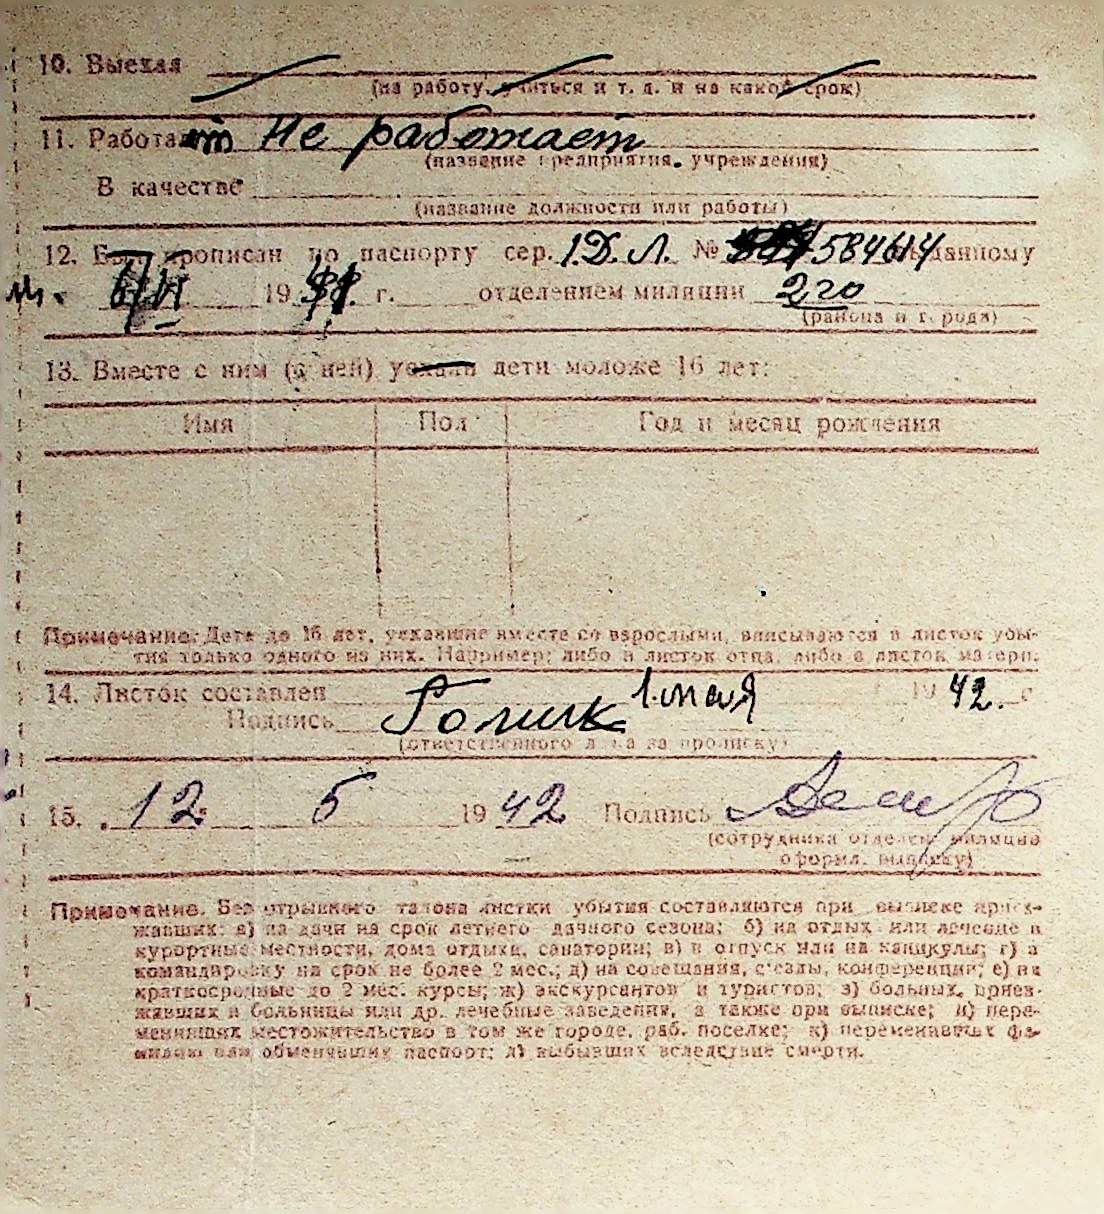 10. Выехал
(на работу, учиться и т. д. и на какой срок)
11. Работает Не работает
(название предприятия, учреждения)
В качестве
(название должности или работы)
12. Был прописан по паспорту сер. I.Д.Л. № 584614 выданному
6/VI 19 г. отделением милиции 2го
(района и города)
13. Вместе с ним (с ней) уехали дети моложе 16 лет:
Имя Пол Год и месяц рождения
Примечание. Дети до 16 лет, уехавшие вместе со взрослыми, вписываются в листок убы-
тия только одного из них. Например: либо в листок отца, либо в листок матери.
14. Листок составлен 1. мая 1942. г
Подпись
(ответственного лица за прописку)
15. 12 5 1942 Подпись
(сотрудника отделен. милиции
оформл. выписку)
Примечание. Без отрывного талона листки убытия составляются при выписке приез-
жавших: а) на дачи на срок летнего дачного сезона; б) на отдых или лечение в
курортные местности, дома отдыха, санатории; в) в отпуск или на каникулы; г) в
командировку на срок не более 2 мес.; д) на совещания, съезды, конференции; е) на
краткосрочные до 2 мес. курсы; ж) экскурсантов и туристов; з) больных, приез-
жавших в больницы или др. лечебные заведения, а также при выписке; и) пере-
менивших местожительство в том же городе, раб. поселке; к) переменивших фа-
милию или обменявших паспорт; л) выбывших вследствие смерти.